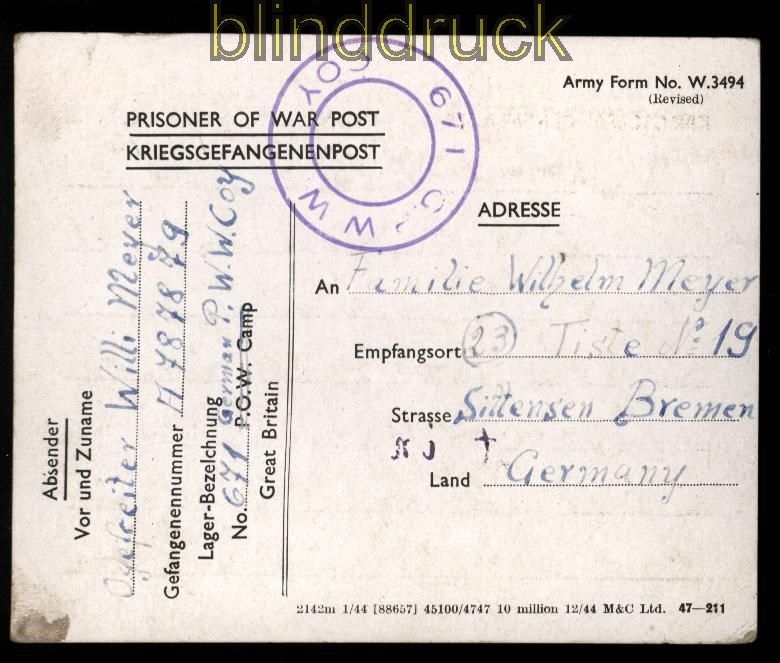 blinddruck
Army Form No. W.3494
(Revised)
PRISONER OF WAR POST
KRIEGSGEFANGENENPOST
671 G.P.W.W COY
ADRESSE
An Familie Wilhelm Meyer
Empfangsort (23) Tiste No 19
Strasse Sittensen Bremen
Land Germany
Absender
Vor und Zuname Ogefreiter Willi Meyer
Gefangenennummer A 787879
Lager-Bezeichnung
No. 671 German P.W.W.Coy P.O.W. Camp
Great Britain
2142m 1/44 [88657] 45100/4747 10 million 12/44 M&C Ltd. 47—211